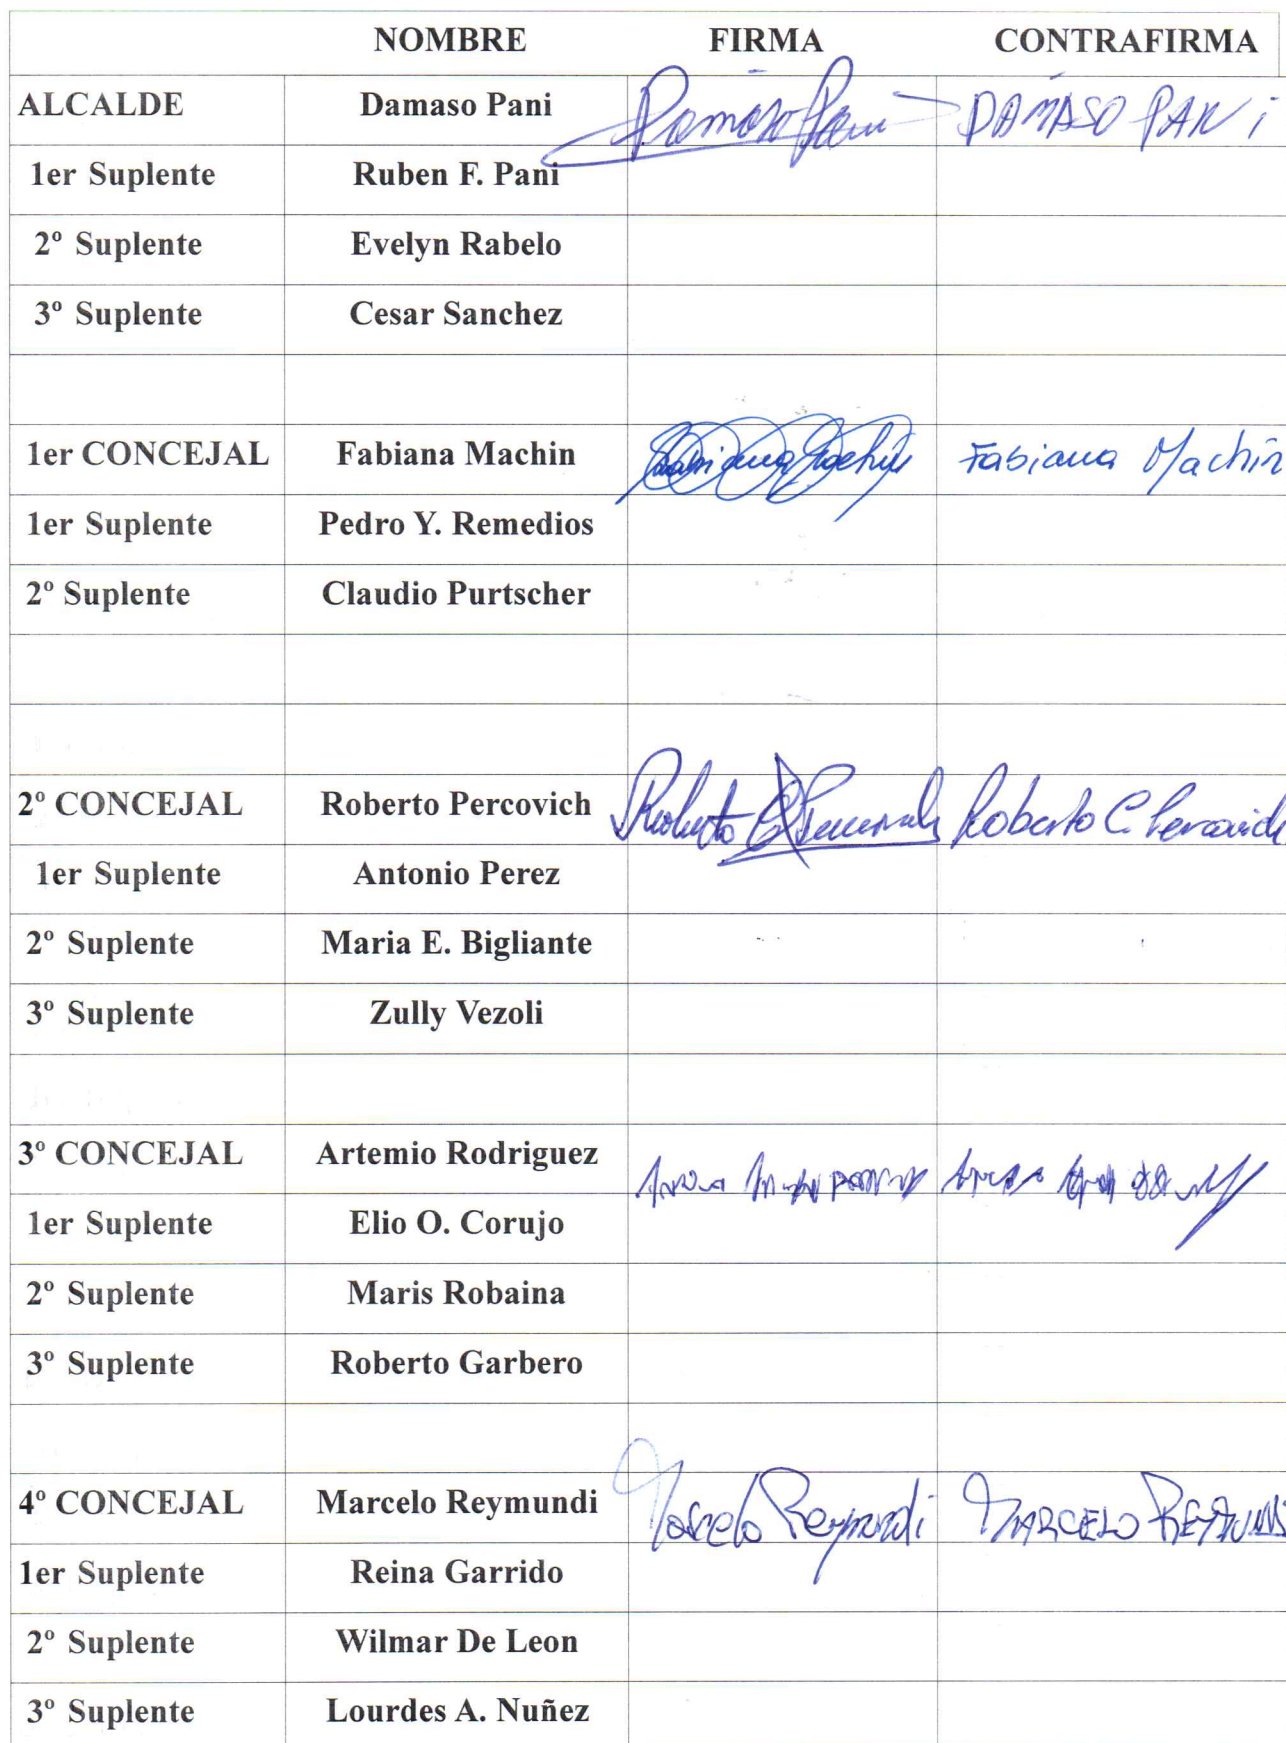 NOMBRE FIRMA CONTRAFIRMA
ALCALDE Damaso Pani Damaso Pani DAMASO PANi
1er Suplente Ruben F. Pani
2º Suplente Evelyn Rabelo
3º Suplente Cesar Sanchez
1er CONCEJAL Fabiana Machin Fabiana Machin Fabiana Machin
1er Suplente Pedro Y. Remedios
2º Suplente Claudio Purtscher
2º CONCEJAL Roberto Percovich Roberto Roberto C. Percovich
1er Suplente Antonio Perez
2º Suplente Maria E. Bigliante
3º Suplente Zully Vezoli
3º CONCEJAL Artemio Rodriguez
1er Suplente Elio O. Corujo
2º Suplente Maris Robaina
3º Suplente Roberto Garbero
4º CONCEJAL Marcelo Reymundi Marcelo Reymundi MARCELO REYMUNDI
1er Suplente Reina Garrido
2º Suplente Wilmar De Leon
3º Suplente Lourdes A. Nuñez